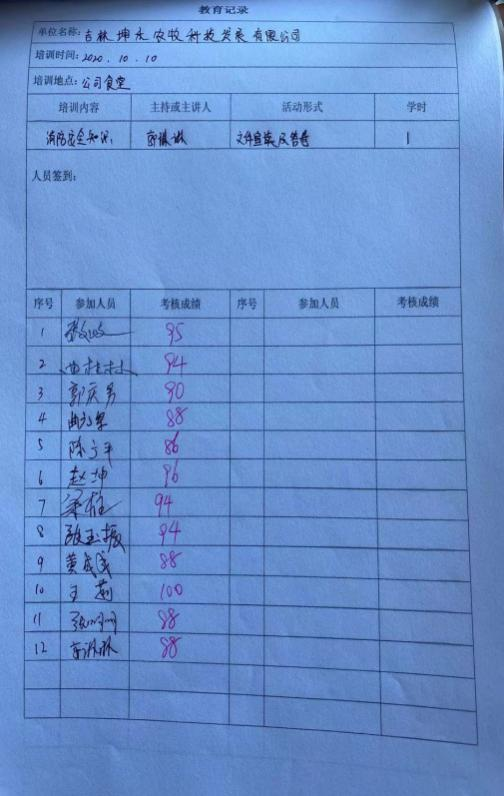 教育记录
单位名称：吉林坤禾农牧科技发展有限公司
培训时间：2020.10.10
培训地点：公司食堂
培训内容 主持或主讲人 活动形式 学时
消防安全知识 文件宣读及答卷 1
人员签到：
序号 参加人员 考核成绩 序号 参加人员 考核成绩
1 95
2 曲桂林 94
3 郭庆男 90
4 88
5 陈宁平 86
6 赵坤 96
7 梁柱 94
8 张玉振 94
9 黄成民 88
10 王莉 100
11 张明明 88
12 88